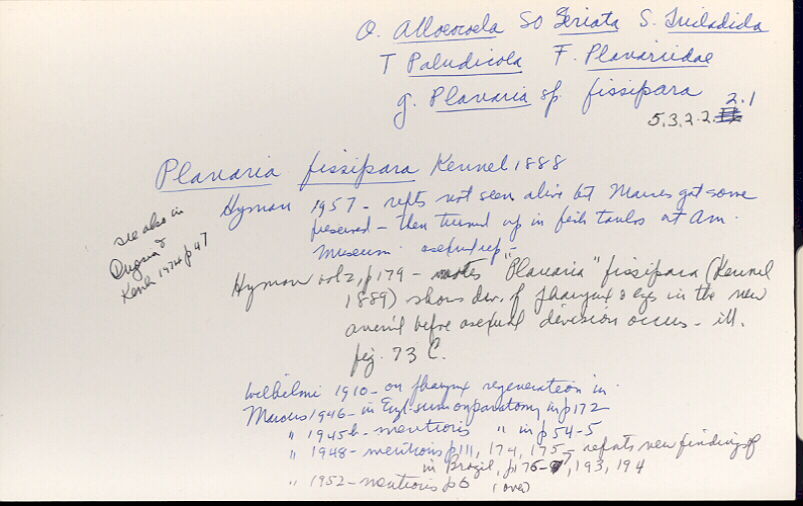 O. Alloeocoela SO Seriata S. Tricladida
T Paludicola F. Planariidae
g. Planaria sp. fissipara
5.3.2.2. 2.1
Planaria fissipara Kennel 1888
see also in
Dugesia &
Kenk 1974 p 47
Hyman 1957 - repts not seen alive but Marcus got some
preserved - then turned up in fish tanks at Am.
Museum. asexual rep -
Hyman vol 2, p 179 - notes "Planaria" fissipara (Kennel
1889) shows dev. of pharynx & eyes in the new
animal before asexual division occurs - ill.
fig. 73 C.
Wilhelmi 1910 - on pharynx regeneration in
Marcus 1946 - in Engl. sum on anatomy in p 172
" 1945b - mentions " in p 54-5
" 1948 - mentions p 111, 174, 175 - repeats new finding of
in Brazil, p 176-7, 193, 194
" 1952 - mentions p 6 (over)